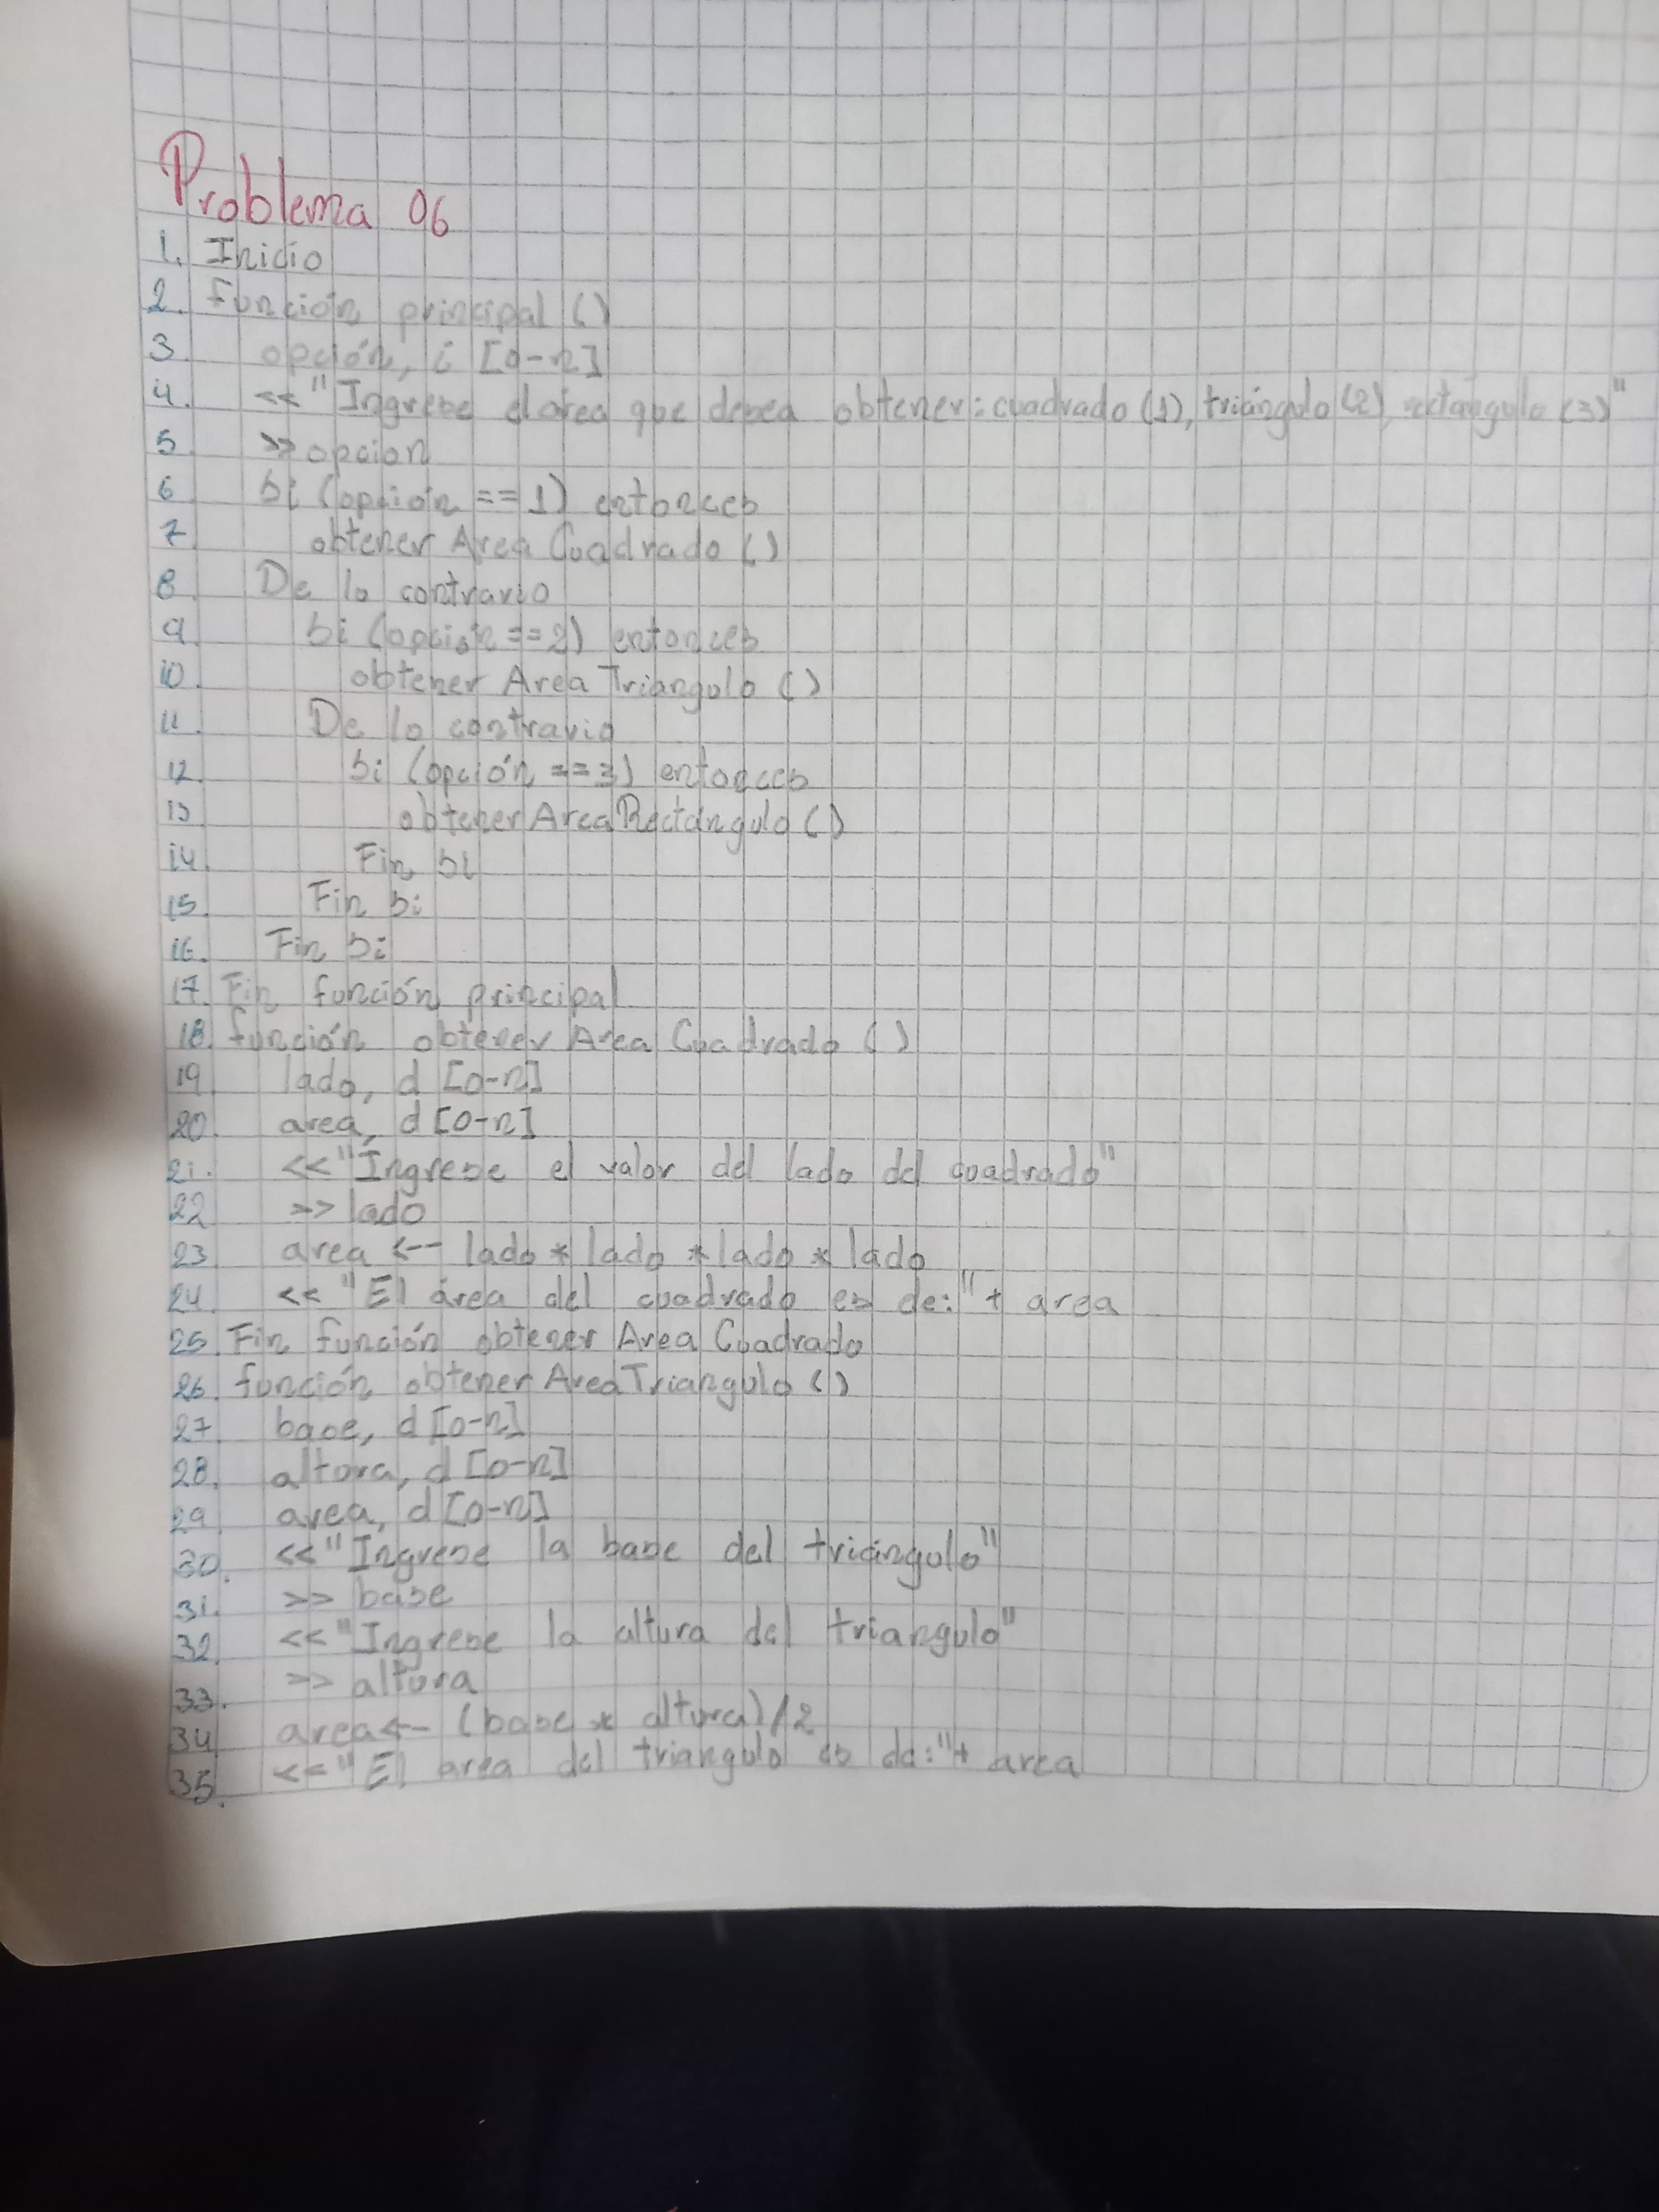 Problema 06
1. Inicio
2. función principal ()
3 opción, i [0-n]
4. << "Ingrese el área que desea obtener: cuadrado (1), triángulo (2), rectángulo (3)"
5 >> opcion
6 Si (opción == 1) entonces
7 obtener Area Cuadrado ()
8 De lo contrario
9 Si (opción == 2) entonces
10. obtener Area Triangulo ()
11. De lo contrario
12. Si (opción == 3) entonces
13 obtener Area Rectángulo ()
14. Fin Si
15. Fin Si
16. Fin Si
17. Fin función principal
18. función obtener Area Cuadrado ()
19 lado, d [0-n]
20. area, d [0-n]
21. << "Ingrese el valor del lado del cuadrado"
22 >> lado
23 area <-- lado * lado * lado * lado
24. << "El área del cuadrado es de:" + area
25. Fin función obtener Area Cuadrado
26. función obtener Area Triangulo ()
27 base, d [0-n]
28. altura, d [0-n]
29 area, d [0-n]
30. << "Ingrese la base del triángulo"
31. >> base
32. << "Ingrese la altura del triangulo"
33. >> altura
34 area <- (base * altura) / 2
35. << "El area del triangulo es de:" + area